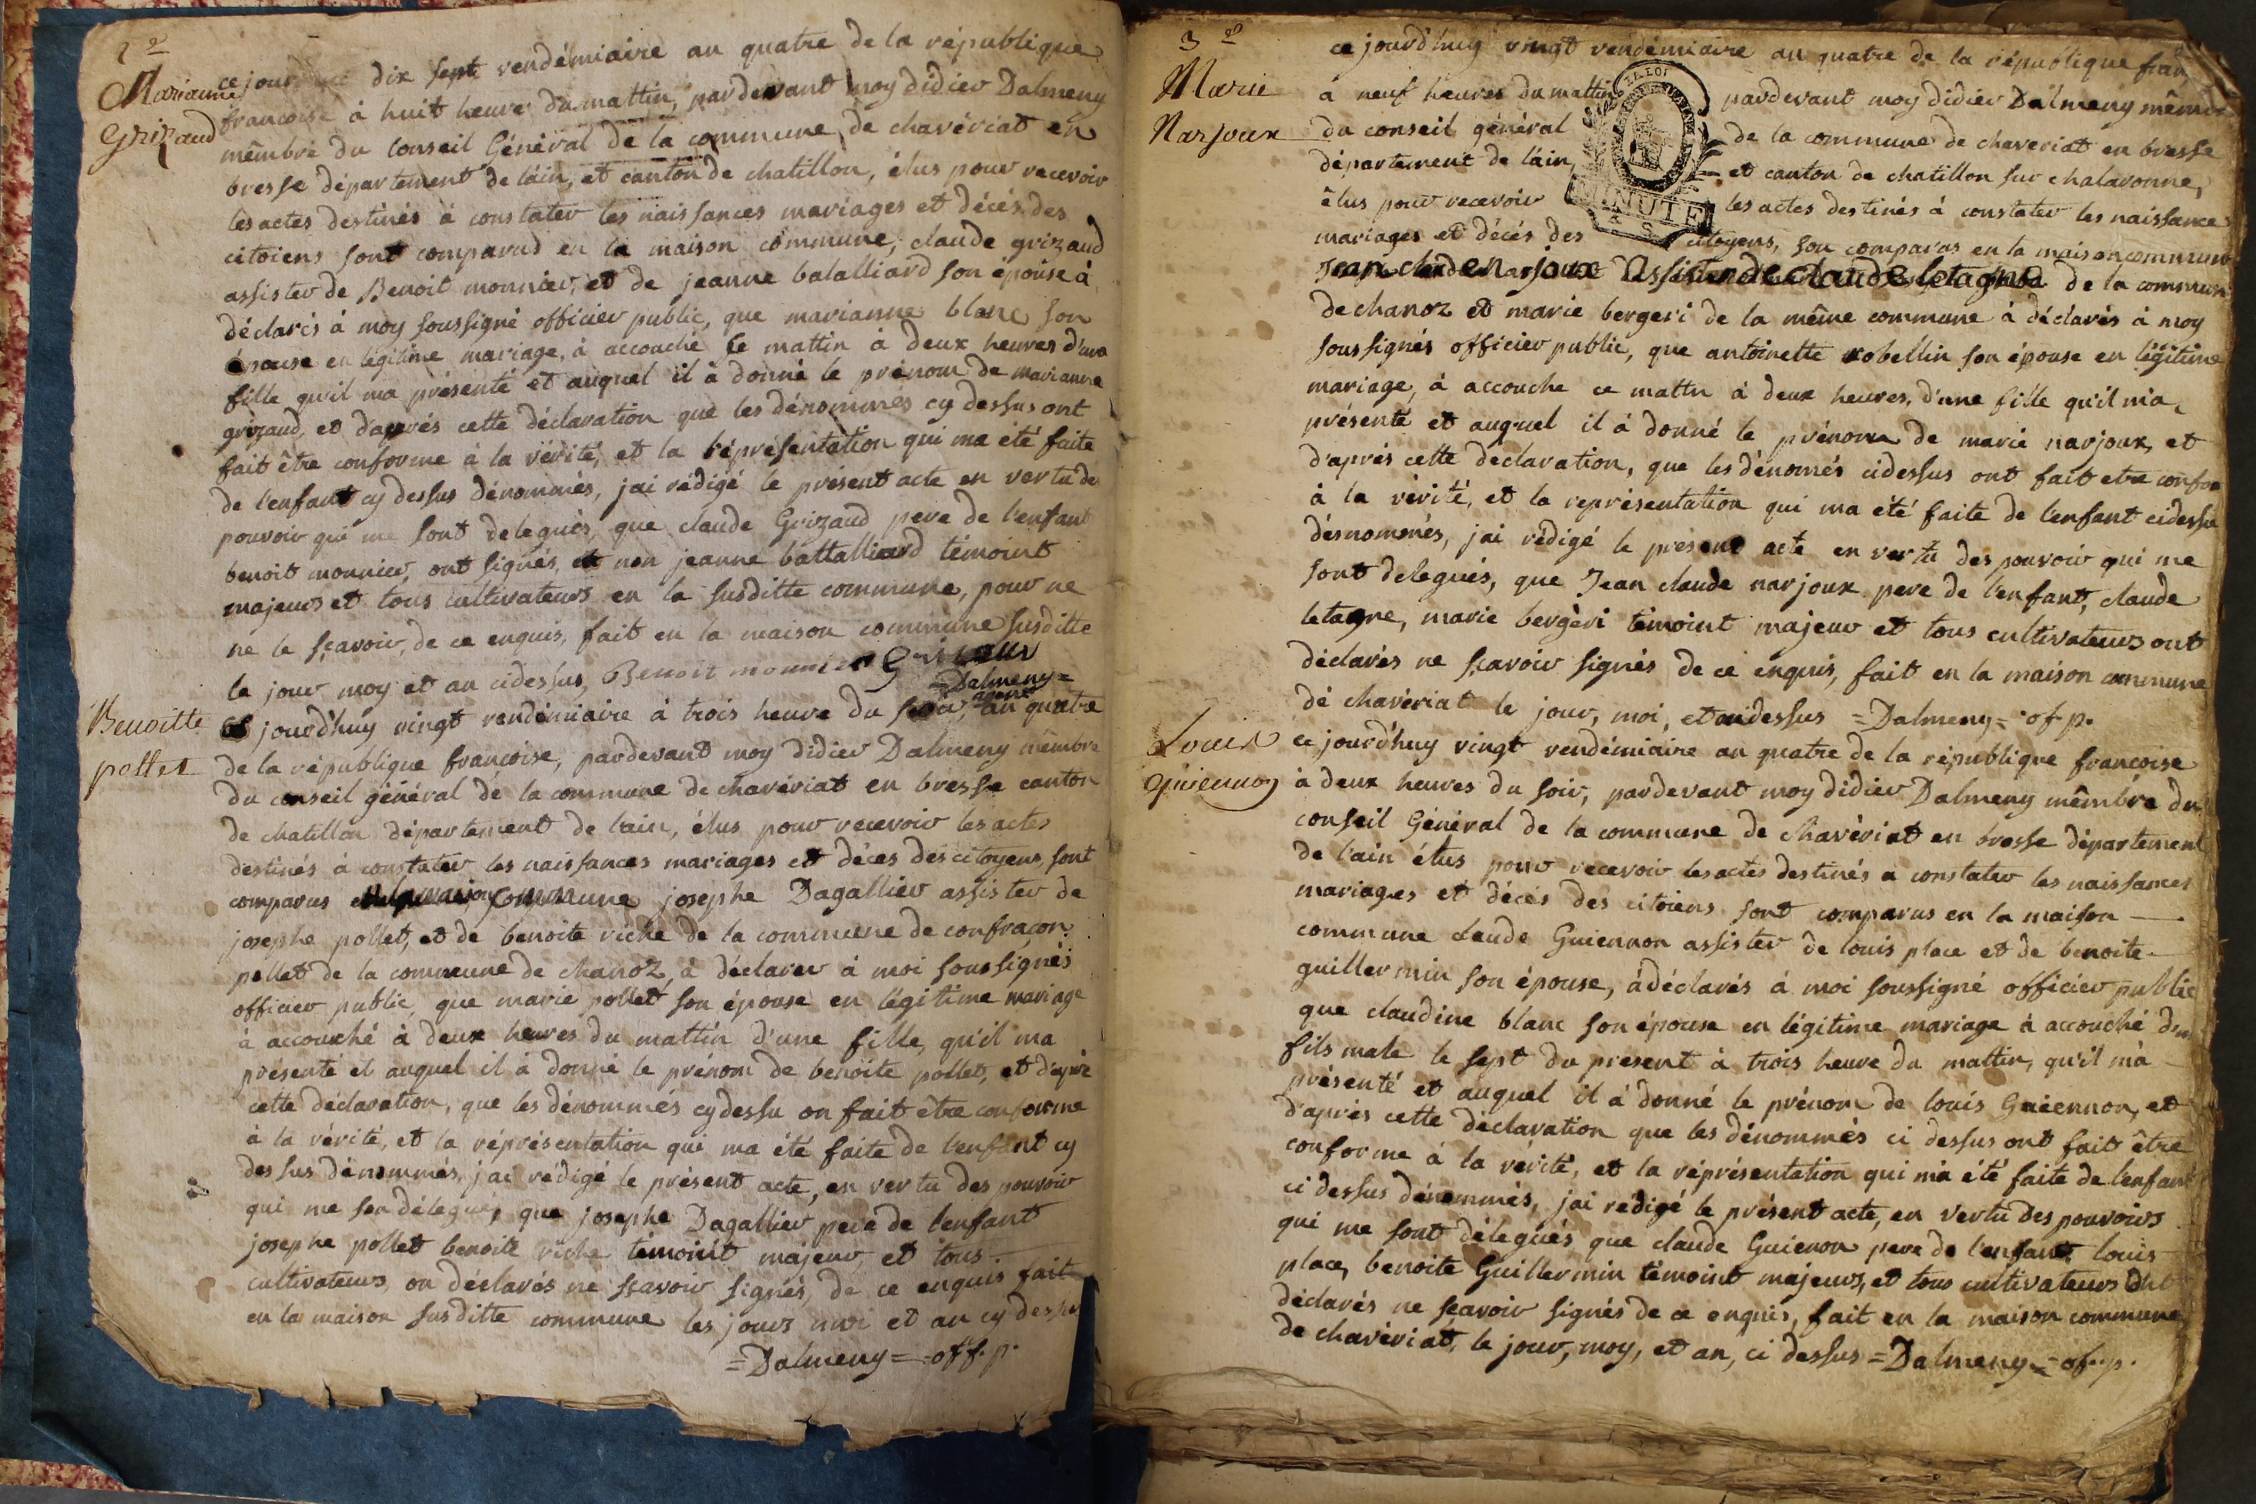 2e
Marianne
Grizaud
ce jour dix sept vendémiaire an quatre de la république
françoise à huit heure du mattin, pardevant moy didier Dalmeny
mêmbre du conseil Général de la commune de chavériat en
bresse département de láin, et canton de chatillon, élus pour recevoir
les actes destinés à constater les naissances mariages et décés des
citoiens sont comparus en la maison commune, claude grizaud
assister de Benoit monnier, et de jeanne balalliard son épouse à
déclarés à moy soussigné officier public, que marianne blanc son
épouse en légitime mariage, à accouché ce mattin à deux heures d'une
fille qu'il ma présenté et auquel il à donné le prénom de marianne
grizaud, et d'aprés cette déclaration que les dénommés cy dessus ont
fait être conforme à la vérité, et la réprésentation qui ma été faite
de l'enfant cy dessus dénommés, jai rédigé le présent acte en vertu de
pouvoir qui me sont delegués, que claude Grizaud pere de l'enfant
benoit monnier, ont signés, et non jeanne battalliard témoint
majeurs et tous cultivateurs en la susditte commune, pour ne
ne le sçavoir, de ce enquis, fait en la maison commune susditte
le jour moy et an cidessus, Benoit monnier
=Dalmeny=
Benoitte
pollet
ce jourd'huy vingt vendémiaire à trois heure du soir, an quatre
de la république françoise, pardevant moy didier Dalmeny mêmbre
du conseil général de la commune de chavériat en bresse canton
de chatillon département de lain, élus pour recevoir les actes
destinés à constater les naissances mariages et déces des citoyens, sont
comparus en la maison commune josephe Dagallier assister de
josephe pollet, et de benoite riche de la commune de confraçon
pollet de la commune de chanoz, à déclarer à moi soussignés
officier public, que marie pollet son épouse en légitime mariage
à accouché à deux heures du mattin d'une fille, qu'il ma
présenté et auquel il à donné le prénom de benoite pollet, et d'aprés
cette déclaration, que les dénommés cy dessu on fait être conforme
à la vérité, et la réprésentation qui ma été faite de l'enfant cy
dessus dénommés, jai rédigé le présent acte, en vertu des pouvoir
qui me son délegués que josephe Dagallier pere de l'enfant
josephe pollet benoite riche témoint majeur et tous
cultivateurs, on déclarés ne sçavoir signés, de ce enquis fait
en la maison susditte commune les jours moi et an cy dessus
=Dalmeny= off. p.
3e
Marie
Narjoux
ce jourd'huy vingt vendémiaire an quatre de la république fran
à neuf heures du mattin pardevant moy didier Dalmeny mêmbre
du conseil général de la commune de chaveriat en bresse
département de láin, et canton de chatillon sur chalaronne,
élus pour recevoir les actes destinés à constater les naissance
mariages et décés des citoyens, son comparus en la maison commune
LA LOI
MINUTE
Jean claude narjoux assister de claude letagne de la commune
de chanoz et marie bergeri de la même commune à déclarés à moy
soussignés officier public, que antoinette robellin son épouse en légitime
mariage, à accouche ce mattin à deux heures, d'une fille qu'il m'a
présenté et auquel il à donné le prénom de marie narjoux, et
d'aprés cette declaration, que les dénomés cidessus ont fait etre confor
à la vérité, et la représentation qui ma été faite de l'enfant cidessu
désnommés, jai rédigé le présent acte en vertu des pouvoir qui me
sont delegués, que Jean claude narjoux pere de l'enfant, claude
letagne, marie bergèri témoint majeur et tous cultivateurs ont
déclarés ne sçavoir signés de ce enquis, fait en la maison commune
dé chavériat le jour, moi, et an cidessus =Dalmeny= of. p.
Louis
Guiennon
ce jourd'huy vingt vendémiaire an quatre de la république françoise
à deux heures du soir, pardevant moy didier Dalmeny mêmbre du
conseil Général de la commune de chavériat en bresse département
de l'ain élus pour recevoir les actes destinés a constater les naissances
mariages et décés des citoiens sont comparus en la maison
commune claude Guiennon assister de louis place et de benoite
guillermin son épouse, à déclarés à moi soussigné officier public
que claudine blanc son épouse en légitime mariage à accouché d'un
fils male le sept du present à trois heure du mattin, qu'il m'a
présenté et auquel il à donné le prénom de louis Guiennon, et
d'aprés cette déclaration que les dénommés ci dessus ont fait être
conforme à la vérité, et la réprésentation qui m'a été faite de l'enfant
ci dessus dénommés, jai rédigé le présent acte, en vertu des pouvoirs
qui me sont délegués que claude Guienon pere de l'enfant louis
place, benoite Guillermin témoint majeurs, et tous cultivateurs ont
déclarés ne sçavoir signés de ce enquis, fait en la maison commune
de chavériat, le jour, moy, et an, ci dessus =Dalmeny= of. p.